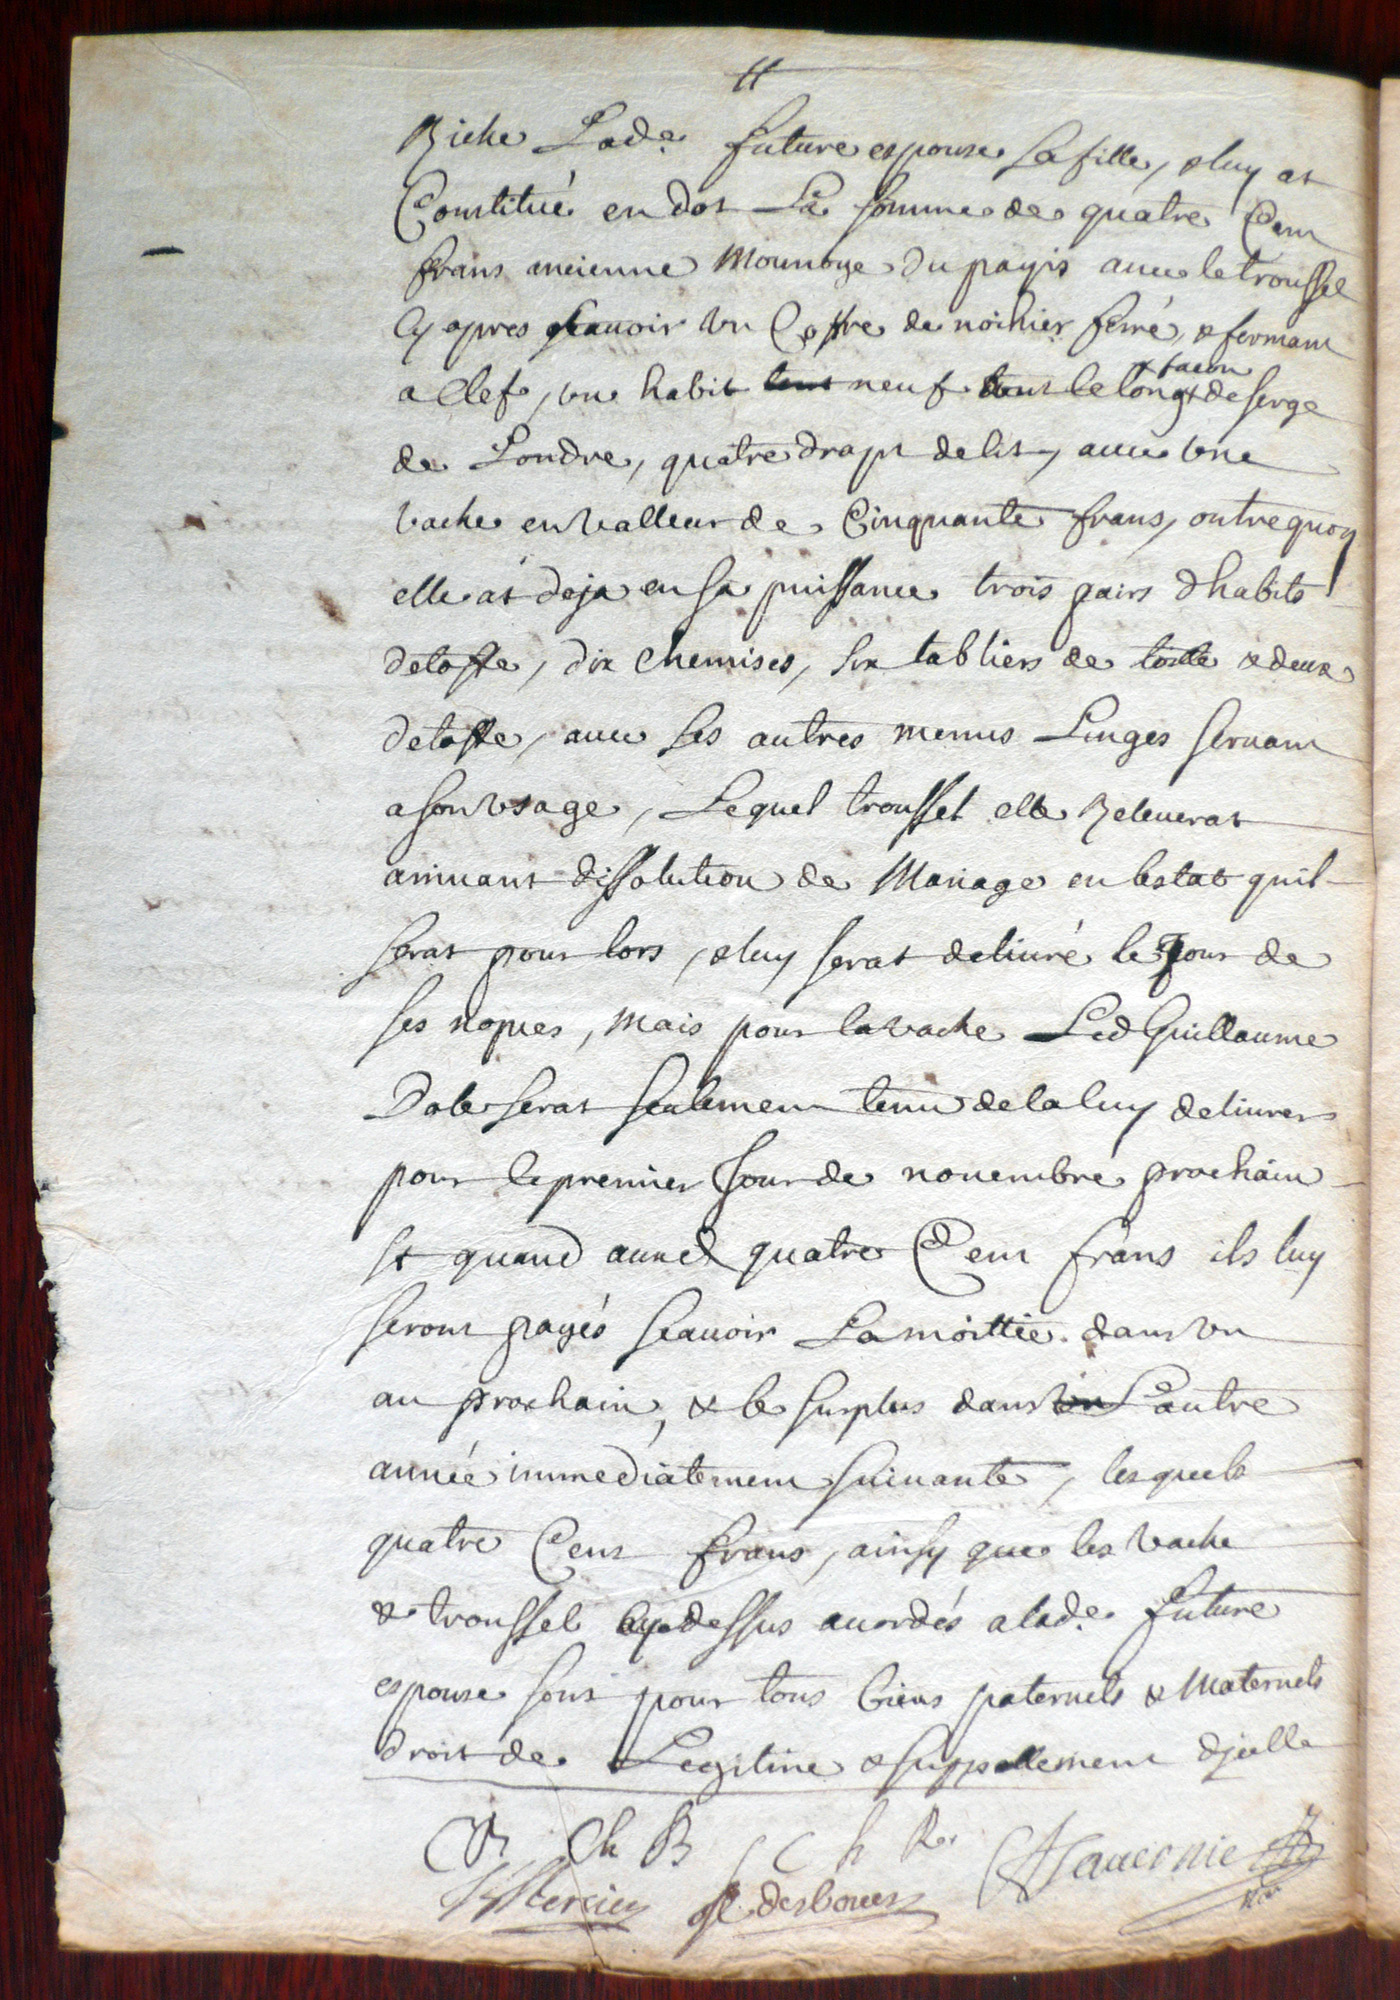 Riche Lad.e future espouse sa fille, & luy at
Constitué en dot La somme de quatre Cent
frans ancienne Monnoye du payis avec le troussel
Cy apres sçauoir vn Coffre de noihier ferré, & fermant
a Clef, vn habit tout neuf tout le long & façon de serge
de Londre, quatre draps de lit, auec vne
vache en valleur de Cinquante frans, outre quoy
elle at deja en sa puissance trois pairs dhabits
detoffe, dix Chemises, six tabliers de toille & deux
detoffe, auec ses autres menus Linges seruant
a son vsage, Lequel troussel elle Releuerat
arriuant dissolution de Mariage en lestat quil
serat pour lors, & luy serat deliuré le Jour de
ses nopces, Mais pour la vache Led Guillaume
Dole serat seulement tenu de la luy deliurer
pour le premier Jour de nouembre prochain
Et quand auxd quatre Cent frans ils luy
seront payés scauoir La moittie dans vn
an prochain, & le surplus dans vn L'autre
année immediatement suiuante, lesquels
quatre Cent frans, ainsy que les vache
& troussel cy dessus acordés a lad.e future
espouse sont pour tous biens paternels & Maternels
droit de Legitime & suppellement d'jcelle
Ch B C h R.
Mercier desbouers